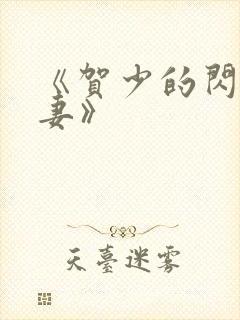 《賀少的閃
妻》
天臺迷霧